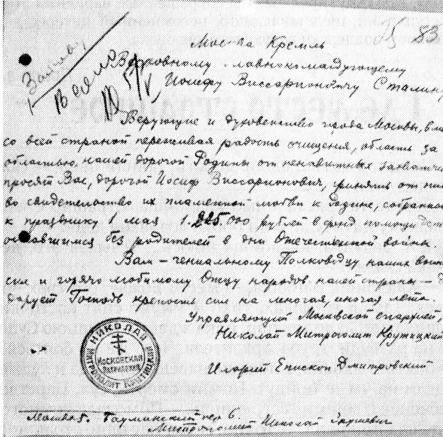 53
Москва Кремль
Верховному Главнокомандующему
Иосифу Виссарионовичу Сталин
Верующие и духовенство города Москвы, вме
со всей страной переживая радость очищения, область за
областью, нашей дорогой Родины от ненавистных захватчи
просят Вас, дорогой Иосиф Виссарионович, принять от ни
во свидетельство их пламенной любви к Родине, собранно
к празднику 1 мая 1. .000 рублей в фонд помощи
оставшимся без родителей в дни Отечественной войны.
Вам – гениальному Полководцу наших
сил и горячо любимому Отцу народов нашей страны –
дарует Господь крепость сил на многая, многая лета.
Управляющий Московской епархией,
Николай Митрополит Крутицкий
Иларий Епископ Дмитровский
НИКОЛАЙ МИТРОПОЛИТ КРУТИЦКИЙ
МОСКОВСКАЯ
Москва 5. Бауманский пер 6.
Митрополит Николай